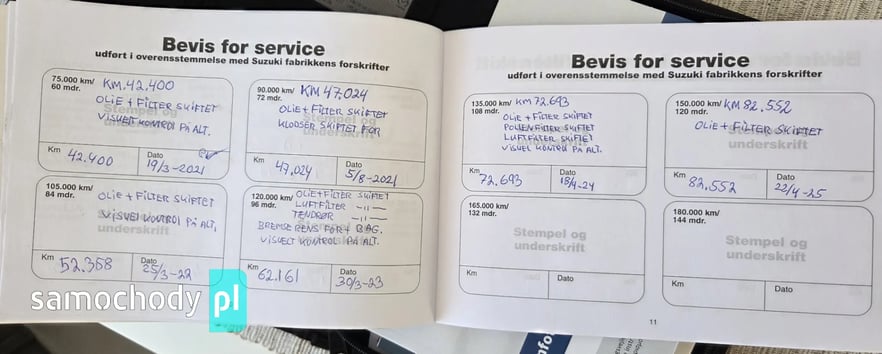 Bevis for service
udført i overensstemmelse med Suzuki fabrikkens forskrifter
75.000 km/ KM.42.400
60 mdr.
OLIE + FILTER SKIFTET
VISUELT KONTROL PÅ ALT.
Stempel og
underskrift
Km
42.400
Dato
19/3-2021
90.000 km/ KM 47.024
72 mdr.
OLIE + FILTER SKIFTET
KLODSER SKIFTET FOR
Stempel og
underskrift
Km
47.024
Dato
5/8-2021
105.000 km/
84 mdr.
OLIE + FILTER SKIFTET
VISUEL KONTROL PÅ ALT.
Stempel og
underskrift
Km
52.358
Dato
25/3-22
120.000 km/
96 mdr.
OLIE + FILTER SKIFTET
LUFTFILTER -"-
TENDRØR -"-
BREMSE RENS FOR + BAG.
VISUELT KONTROL PÅ ALT.
Km
62.161
Dato
30/3-23
Bevis for service
udført i overensstemmelse med Suzuki fabrikkens forskrifter
135.000 km/ KM 72.693
108 mdr.
OLIE + FILTER SKIFTET
POLLENFILTER SKIFTET
LUFTFILTER SKIFTET
VISUEL KONTROL PÅ ALT.
Km
72.693
Dato
18/4-24
150.000 km/ KM 82.552
120 mdr.
OLIE + FILTER SKIFTET
Stempel og
underskrift
Km
82.552
Dato
22/4-25
165.000 km/
132 mdr.
Stempel og
underskrift
Km
Dato
180.000 km/
144 mdr.
Stempel og
underskrift
Km
Dato
11
samochody pl